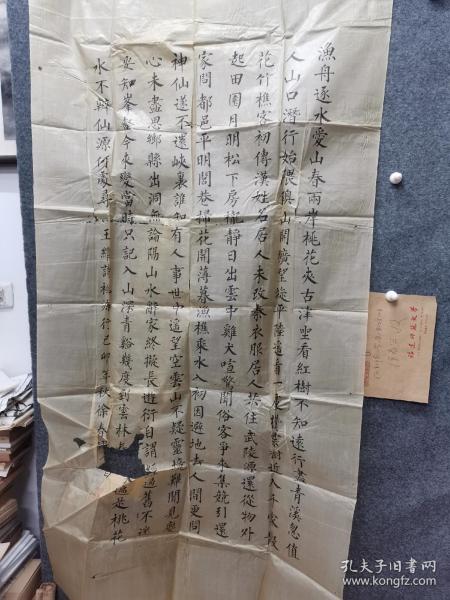 漁舟逐水愛山春兩岸桃花夾古津坐看紅樹不知遠行盡青溪忽值
人山口潛行始隈隩山開曠望旋平陸遙看一處攢雲樹近入千家散
花竹樵客初傳漢姓名居人未改秦衣服居人共住武陵源還從物外
起田園月明松下房櫳靜日出雲中雞犬喧驚聞俗客爭來集競引還
家問都邑平明閭巷掃花開薄暮漁樵乘水入初因避地去人間更問
神仙遂不還峽裏誰知有人事世中遙望空雲山不疑靈境難聞見塵
心未盡思鄉縣出洞無論隔山水辭家終擬長遊衍自謂過舊不迷
安知峯壑今來變當時只記入山深青谿幾度到雲林遍是桃花
水不辨仙源何處尋 王維詩桃源行己卯年秋徐
孔夫子旧书网
www.kongfz.com